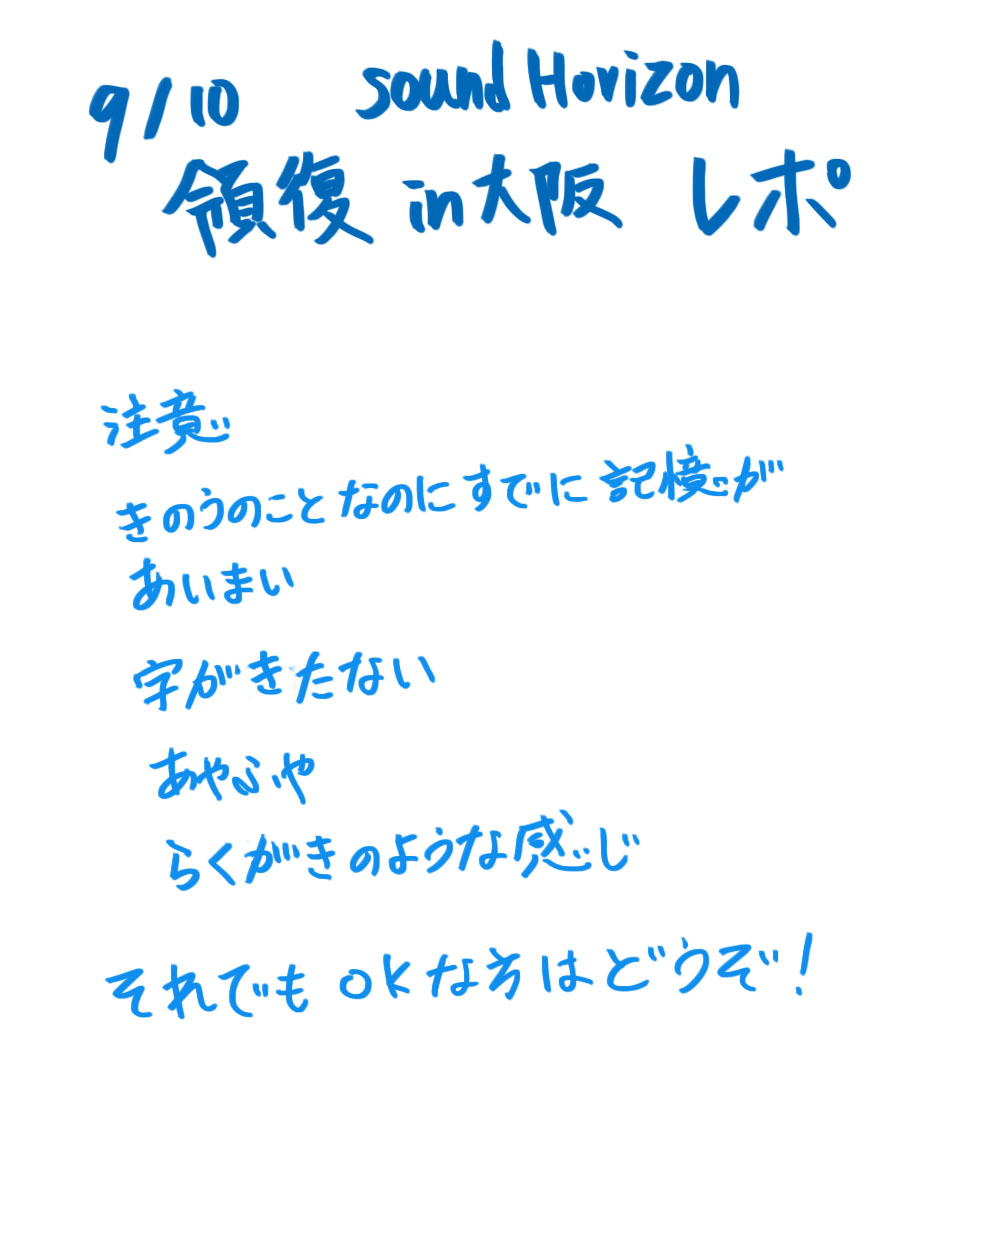 9/10 sound Horizon
領復 in 大阪 レポ
注意
きのうのことなのにすでに記憶が
あいまい
字がきたない
あやふや
らくがきのような感じ
それでも OKな方はどうぞ!